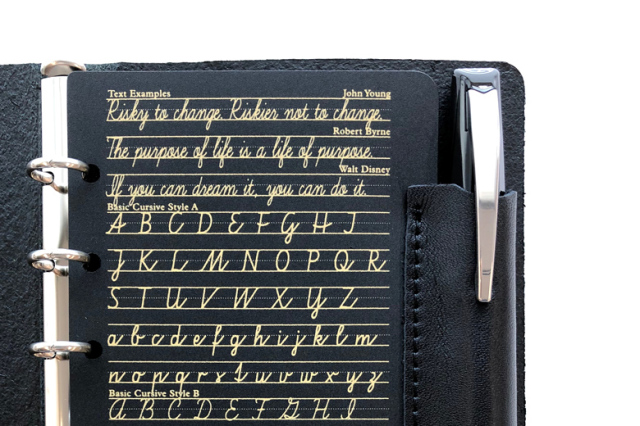 Text Examples John Young
Risky to change. Riskier not to change.
Robert Byrne
The purpose of life is a life of purpose.
Walt Disney
If you can dream it, you can do it.
Basic Cursive Style A
A B C D E F G H I
J K L M N O P Q R
S T U V W X Y Z
a b c d e f g h i j k l m
n o p q r s t u v w x y z
Basic Cursive Style B
A B C D E F G H I